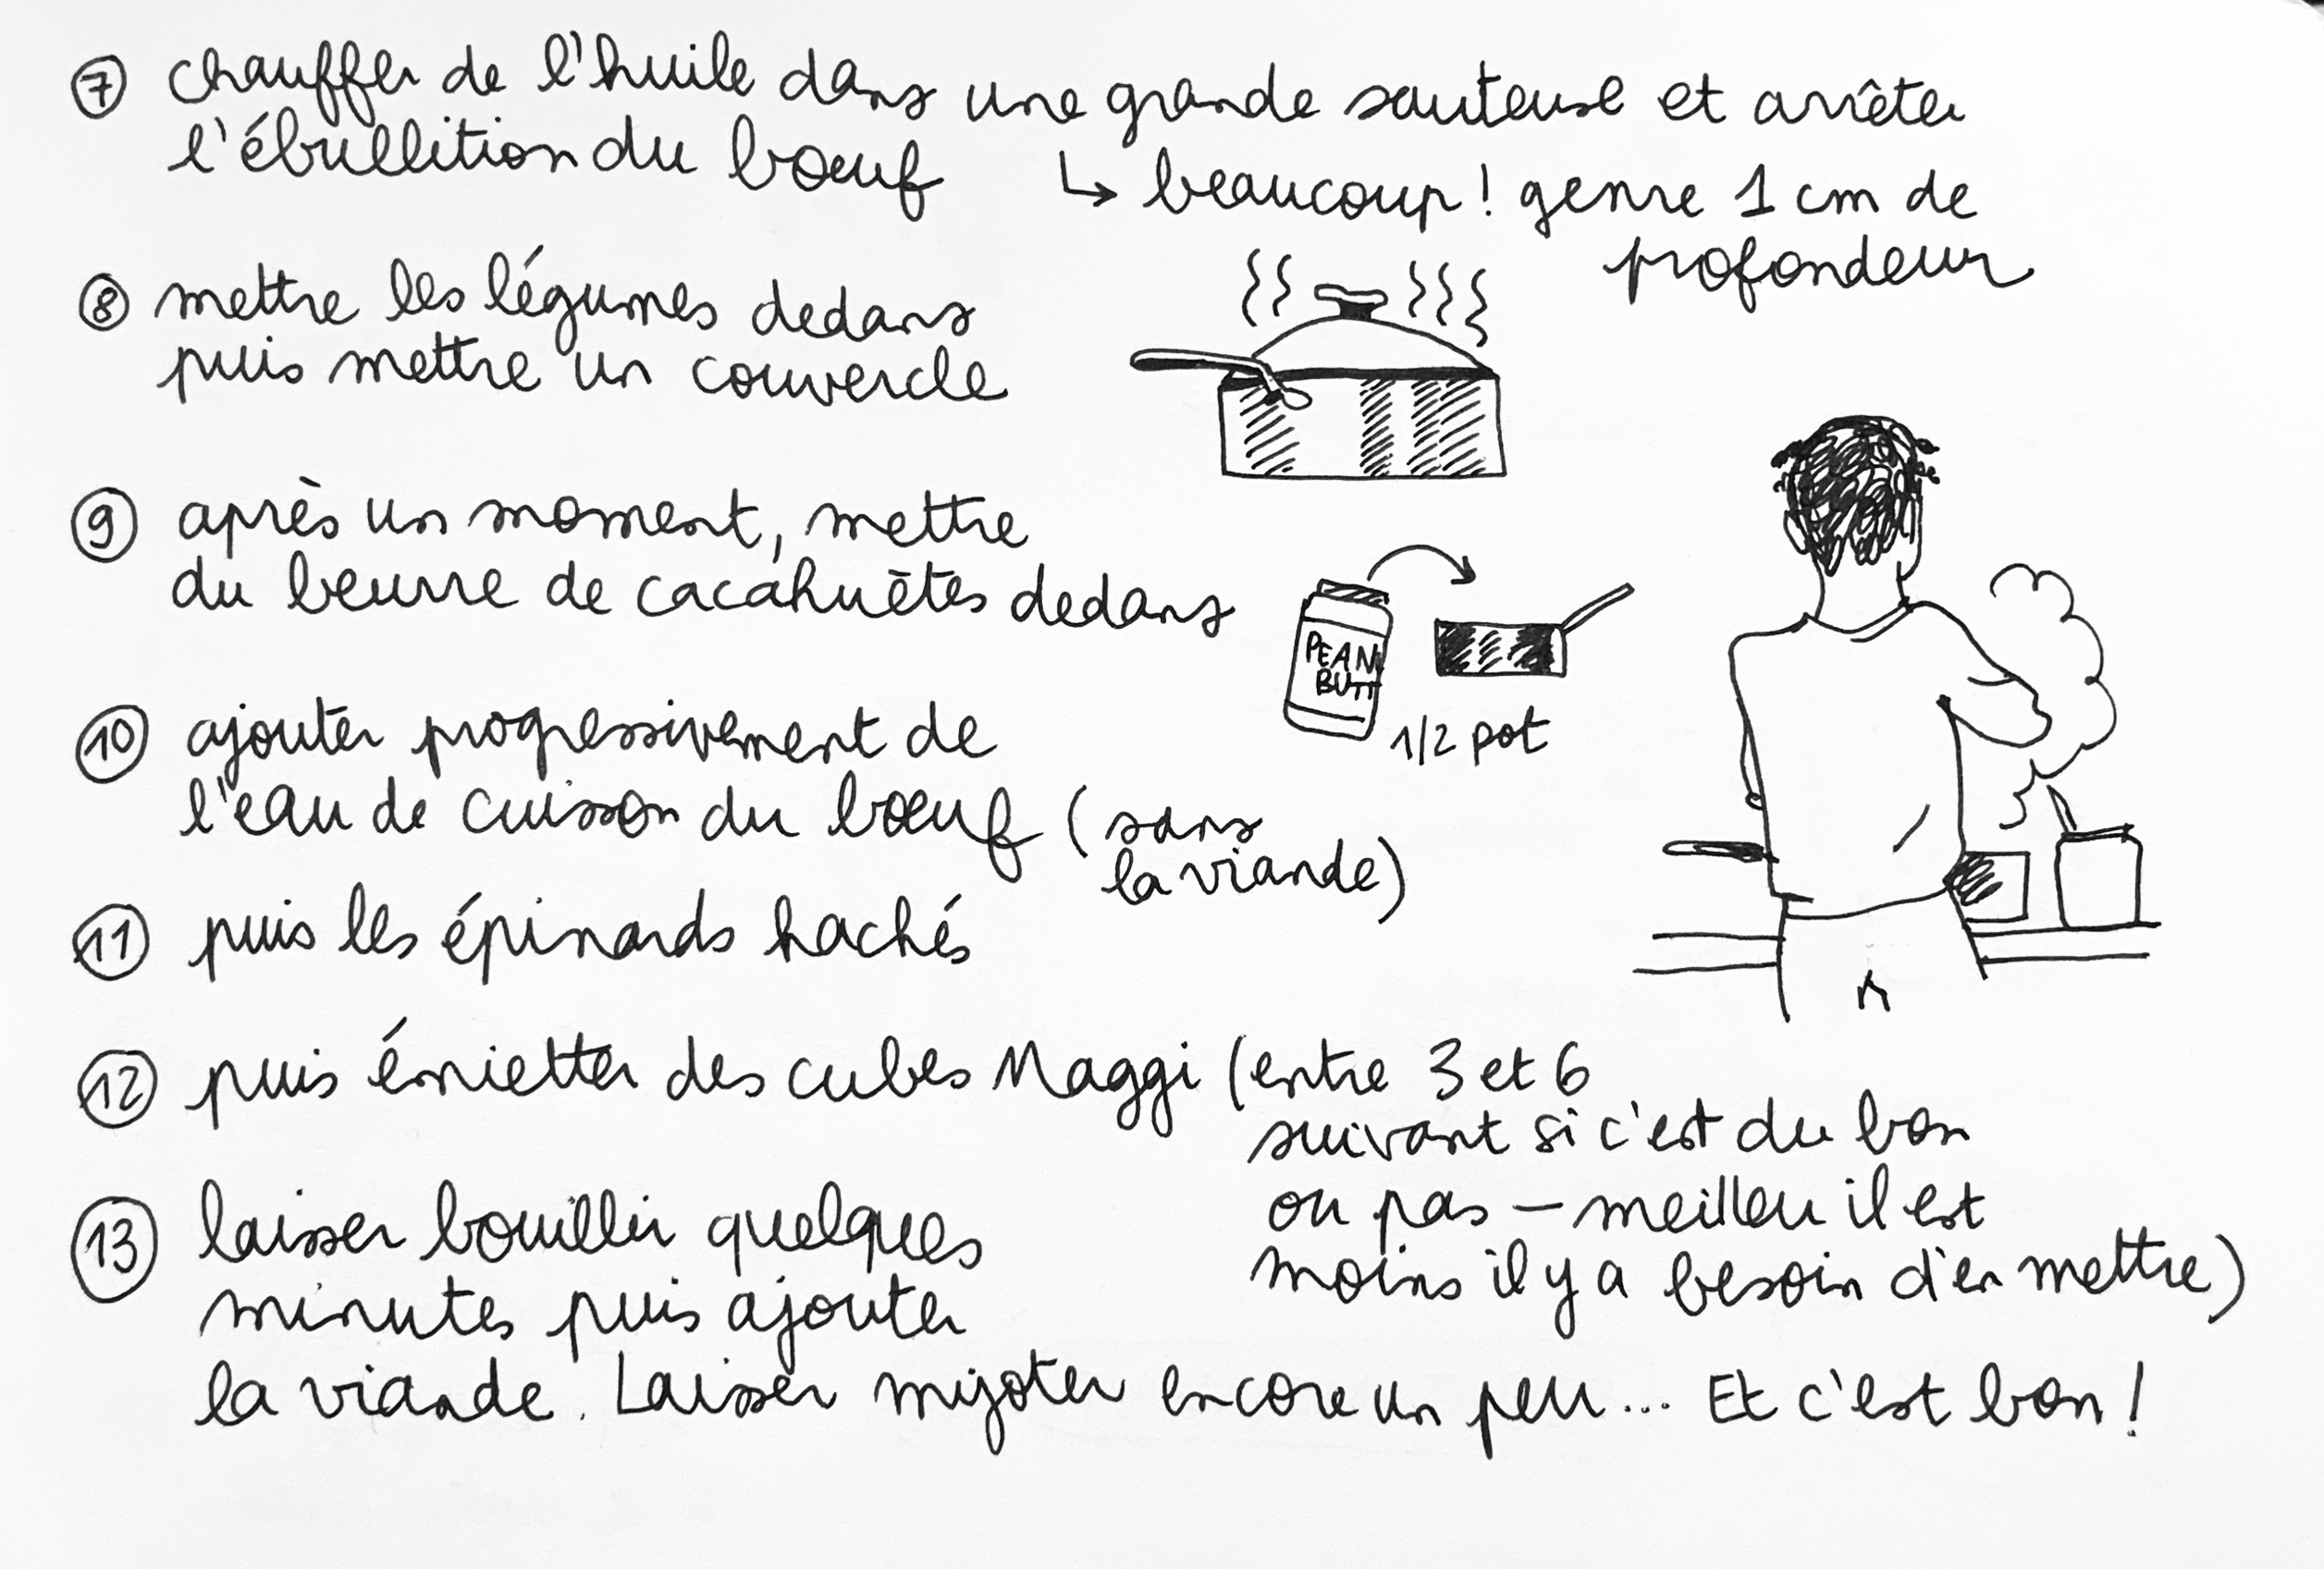 ⑦ chauffer de l'huile dans une grande sauteuse et arrêter
l'ébullition du bœuf
↳ beaucoup ! genre 1 cm de
profondeur
⑧ mettre les légumes dedans
puis mettre un couvercle
⑨ après un moment, mettre
du beurre de cacahuètes dedans
PEAN
BUTT
1/2 pot
⑩ ajouter progressivement de
l'eau de cuisson du bœuf (sans
la viande)
⑪ puis les épinards hachés
⑫ puis émietter des cubes Maggi (entre 3 et 6
suivant si c'est du bon
ou pas – meilleu il est
moins il y a besoin d'en mettre)
⑬ laisser bouillir quelques
minutes puis ajouter
la viande. Laisser mijoter encore un peu... Et c'est bon !